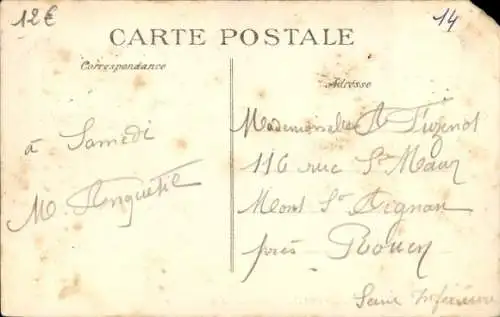 12€
14
CARTE POSTALE
Correspondance
Adresse
à Samedi
M. Anquetil
Mademoiselle A
116 rue St Maur
Mont St Aignan
près Rouen
Seine Inférieure